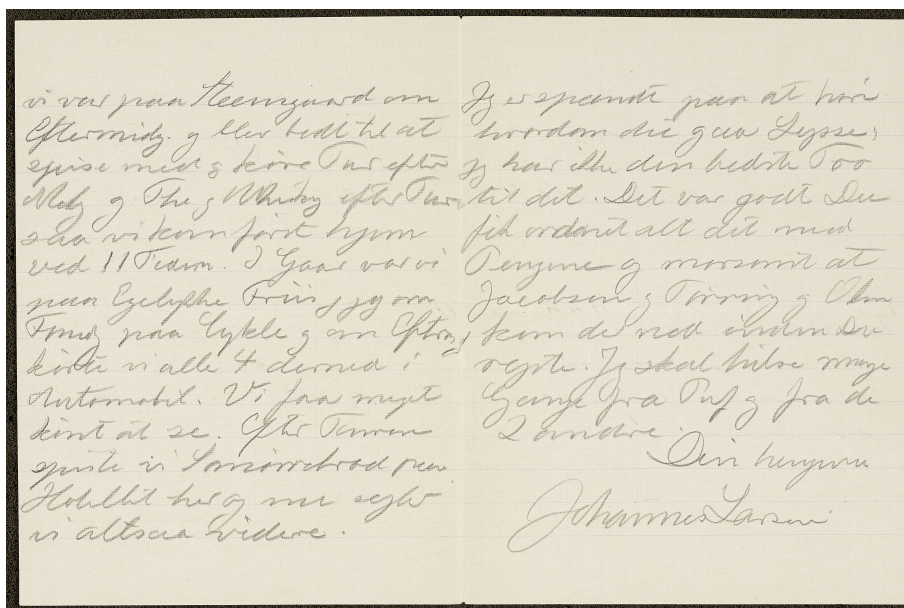 vi var paa Steensgaard om
Eftermidg. og blev bedt til at
spise med og køre Tur efter
Midg og The og Whisky efter Turen
saa vi kom først hjem
ved 11 Tiden. I Gaar var vi
paa Egeløkke Friis og jeg om
Formdg paa Cykle og om Eftermdg
kørte vi alle 4 derned i
Automobil. Vi faar meget
kønt at se. Efter Turen
spiste vi Smørrebrød paa
Hotellet her og nu sejler
vi altsaa videre.
Jeg er spændt paa at høre
hvordan det gaar Lysse,
jeg har ikke den bedste Tro
til det. Det var godt Du
fik ordnet alt det med
Pengene og morsomt at
Jacobsen og Tørring og
kom de ned inden Du
rejste. Jeg skal hilse mange
Gange fra Puf og fra de
2 andre.
Din hengivne
Johannes Larsen